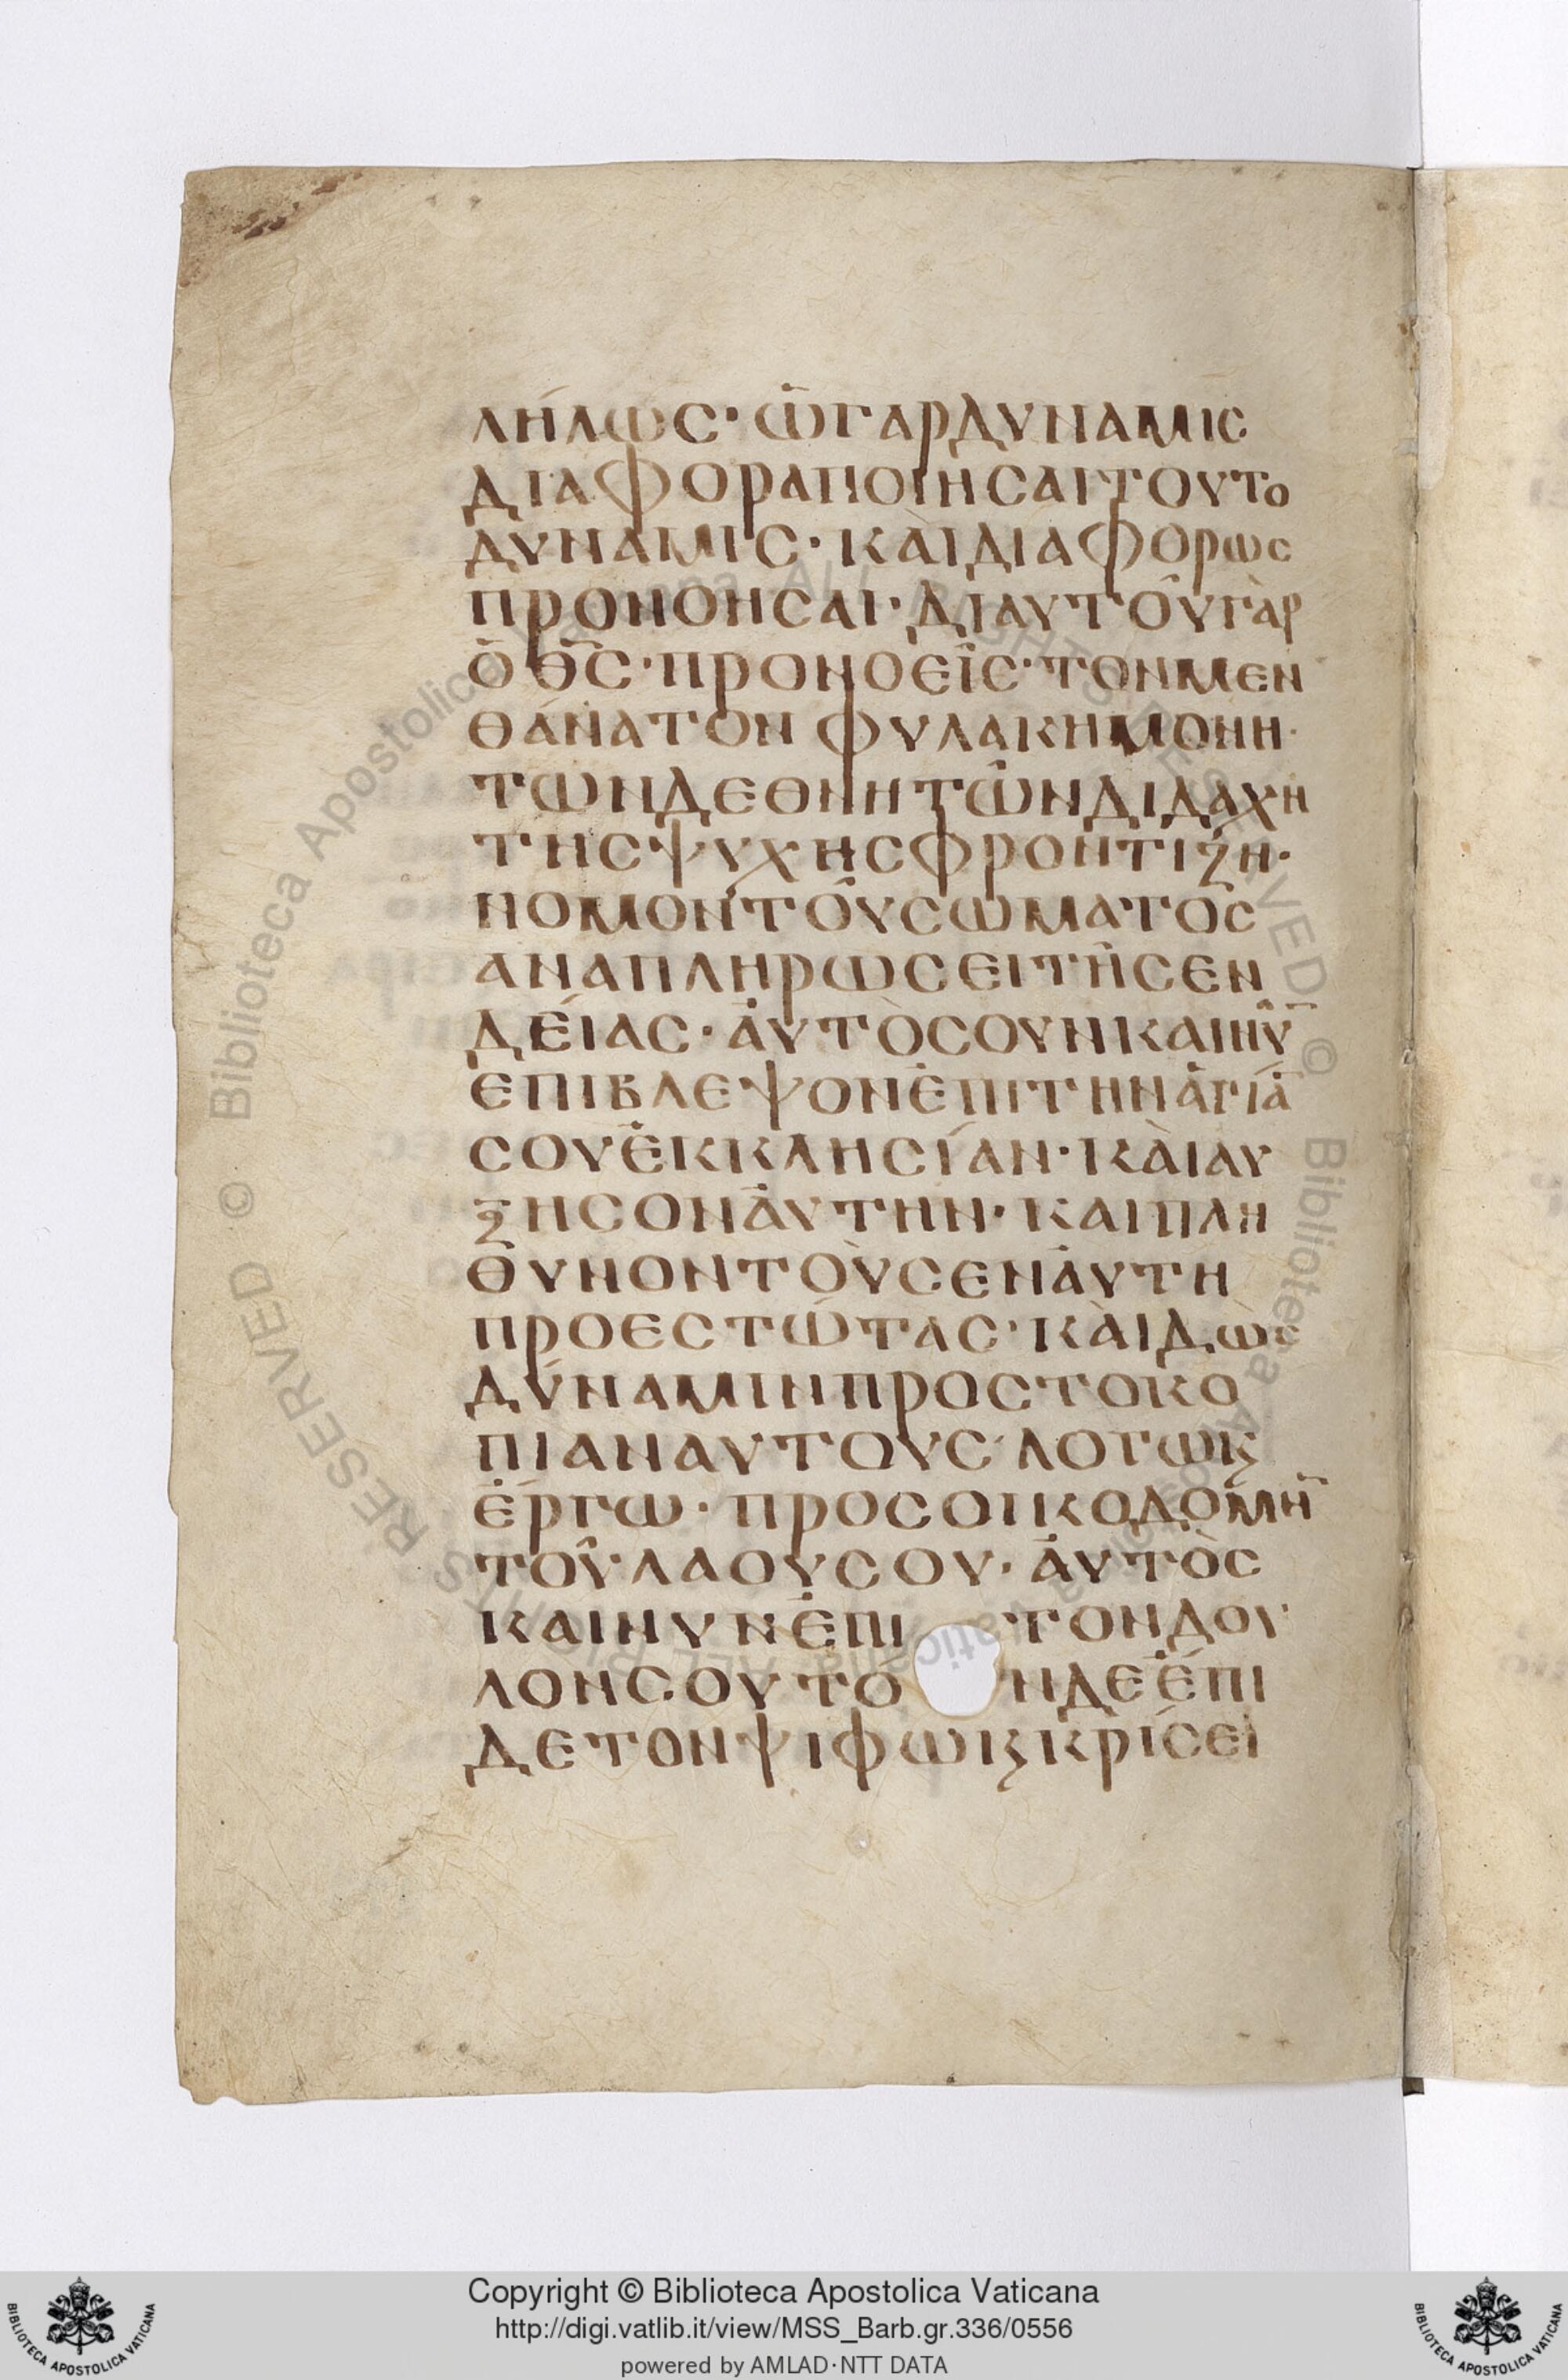 ΛΗΛΩC· Ὧ ΓΑΡ ΔΥΝΑΜΙC
ΔΙΑΦΟΡΑ ΠΟΙΗCΑΙ ΤΟΥΤΟ
ΔΥΝΑΜΙC· ΚΑῚ ΔΙΑΦΟΡΩC
ΠΡΟΝΟΗCΑΙ· ΔΙΑΥΤΟΥ͂ ΓᾺΡ
Ὁ Θ̅C̅· ΠΡΟΝΟΕΙ͂C· ΤΟΝ ΜΕΝ
ΘΑΝΑΤΟΝ ΦΥΛΑΚΗ ΜΟΝΗ·
ΤΩΝ ΔΕ ΘΝΗΤΩ͂Ν ΔΙΔΑΧΗ
ΤΗC ΨΥΧΗC ΦΡΟΝΤΙΖΗ·
ΝΟΜΟΝ ΤΟΥ͂ CΩΜΑΤΟC
ΑΝΑΠΛΗΡΩCΕΙ ΤΗ͂C ΕΝ
ΔΕΊΑC· ἈΥΤῸC ΟΥΝ ΚΑΙ ΝΥ͂̅
ΕΠΙΒΛΕΨΟΝ ἘΠΙ ΤΗΝ ἉΓΊΑ̅
CΟΥ ἘΚΚΛΗCΊΑΝ· ΚᾺΙ ΑΥ
ΞΗCΟΝ ἈΥΤΗΝ· ΚΑΙ ΠΛΗ
ΘΥΝΟΝ ΤΟῪC ΕΝ ἈΥΤΗ
ΠΡΟΕCΤΩ͂ΤΑC· ΚᾺΙ ΔῺC
ΔΎΝΑΜΙΝ ΠΡΟC ΤΟ ΚΟ
ΠΙΑΝ ΑΥΤΟΥC ΛΟΓΩ Ϗ
ἘΡΓΩ· ΠΡΟC ΟΙΚΟΔΟΜΗ̅
ΤΟΥ͂ ΛΑΟΥ CΟΥ· ἈΥΤῸC
ΚΑΙ ΝΥΝ ἘΠΙ ΤΟΝ ΔΟΥ
ΛΟΝ CΟΥ ΤΌΝΔΕ ἘΠΙ
ΔΕ ΤΟΝ ΨΙΦΩ Ϗ ΚΡΊCΕΙ
Copyright © Biblioteca Apostolica Vaticana
http://digi.vatlib.it/view/MSS_Barb.gr.336/0556
powered by AMLAD·NTT DATA
BIBLIOTECA APOSTOLICA VATICANA
BIBLIOTECA APOSTOLICA VATICANA